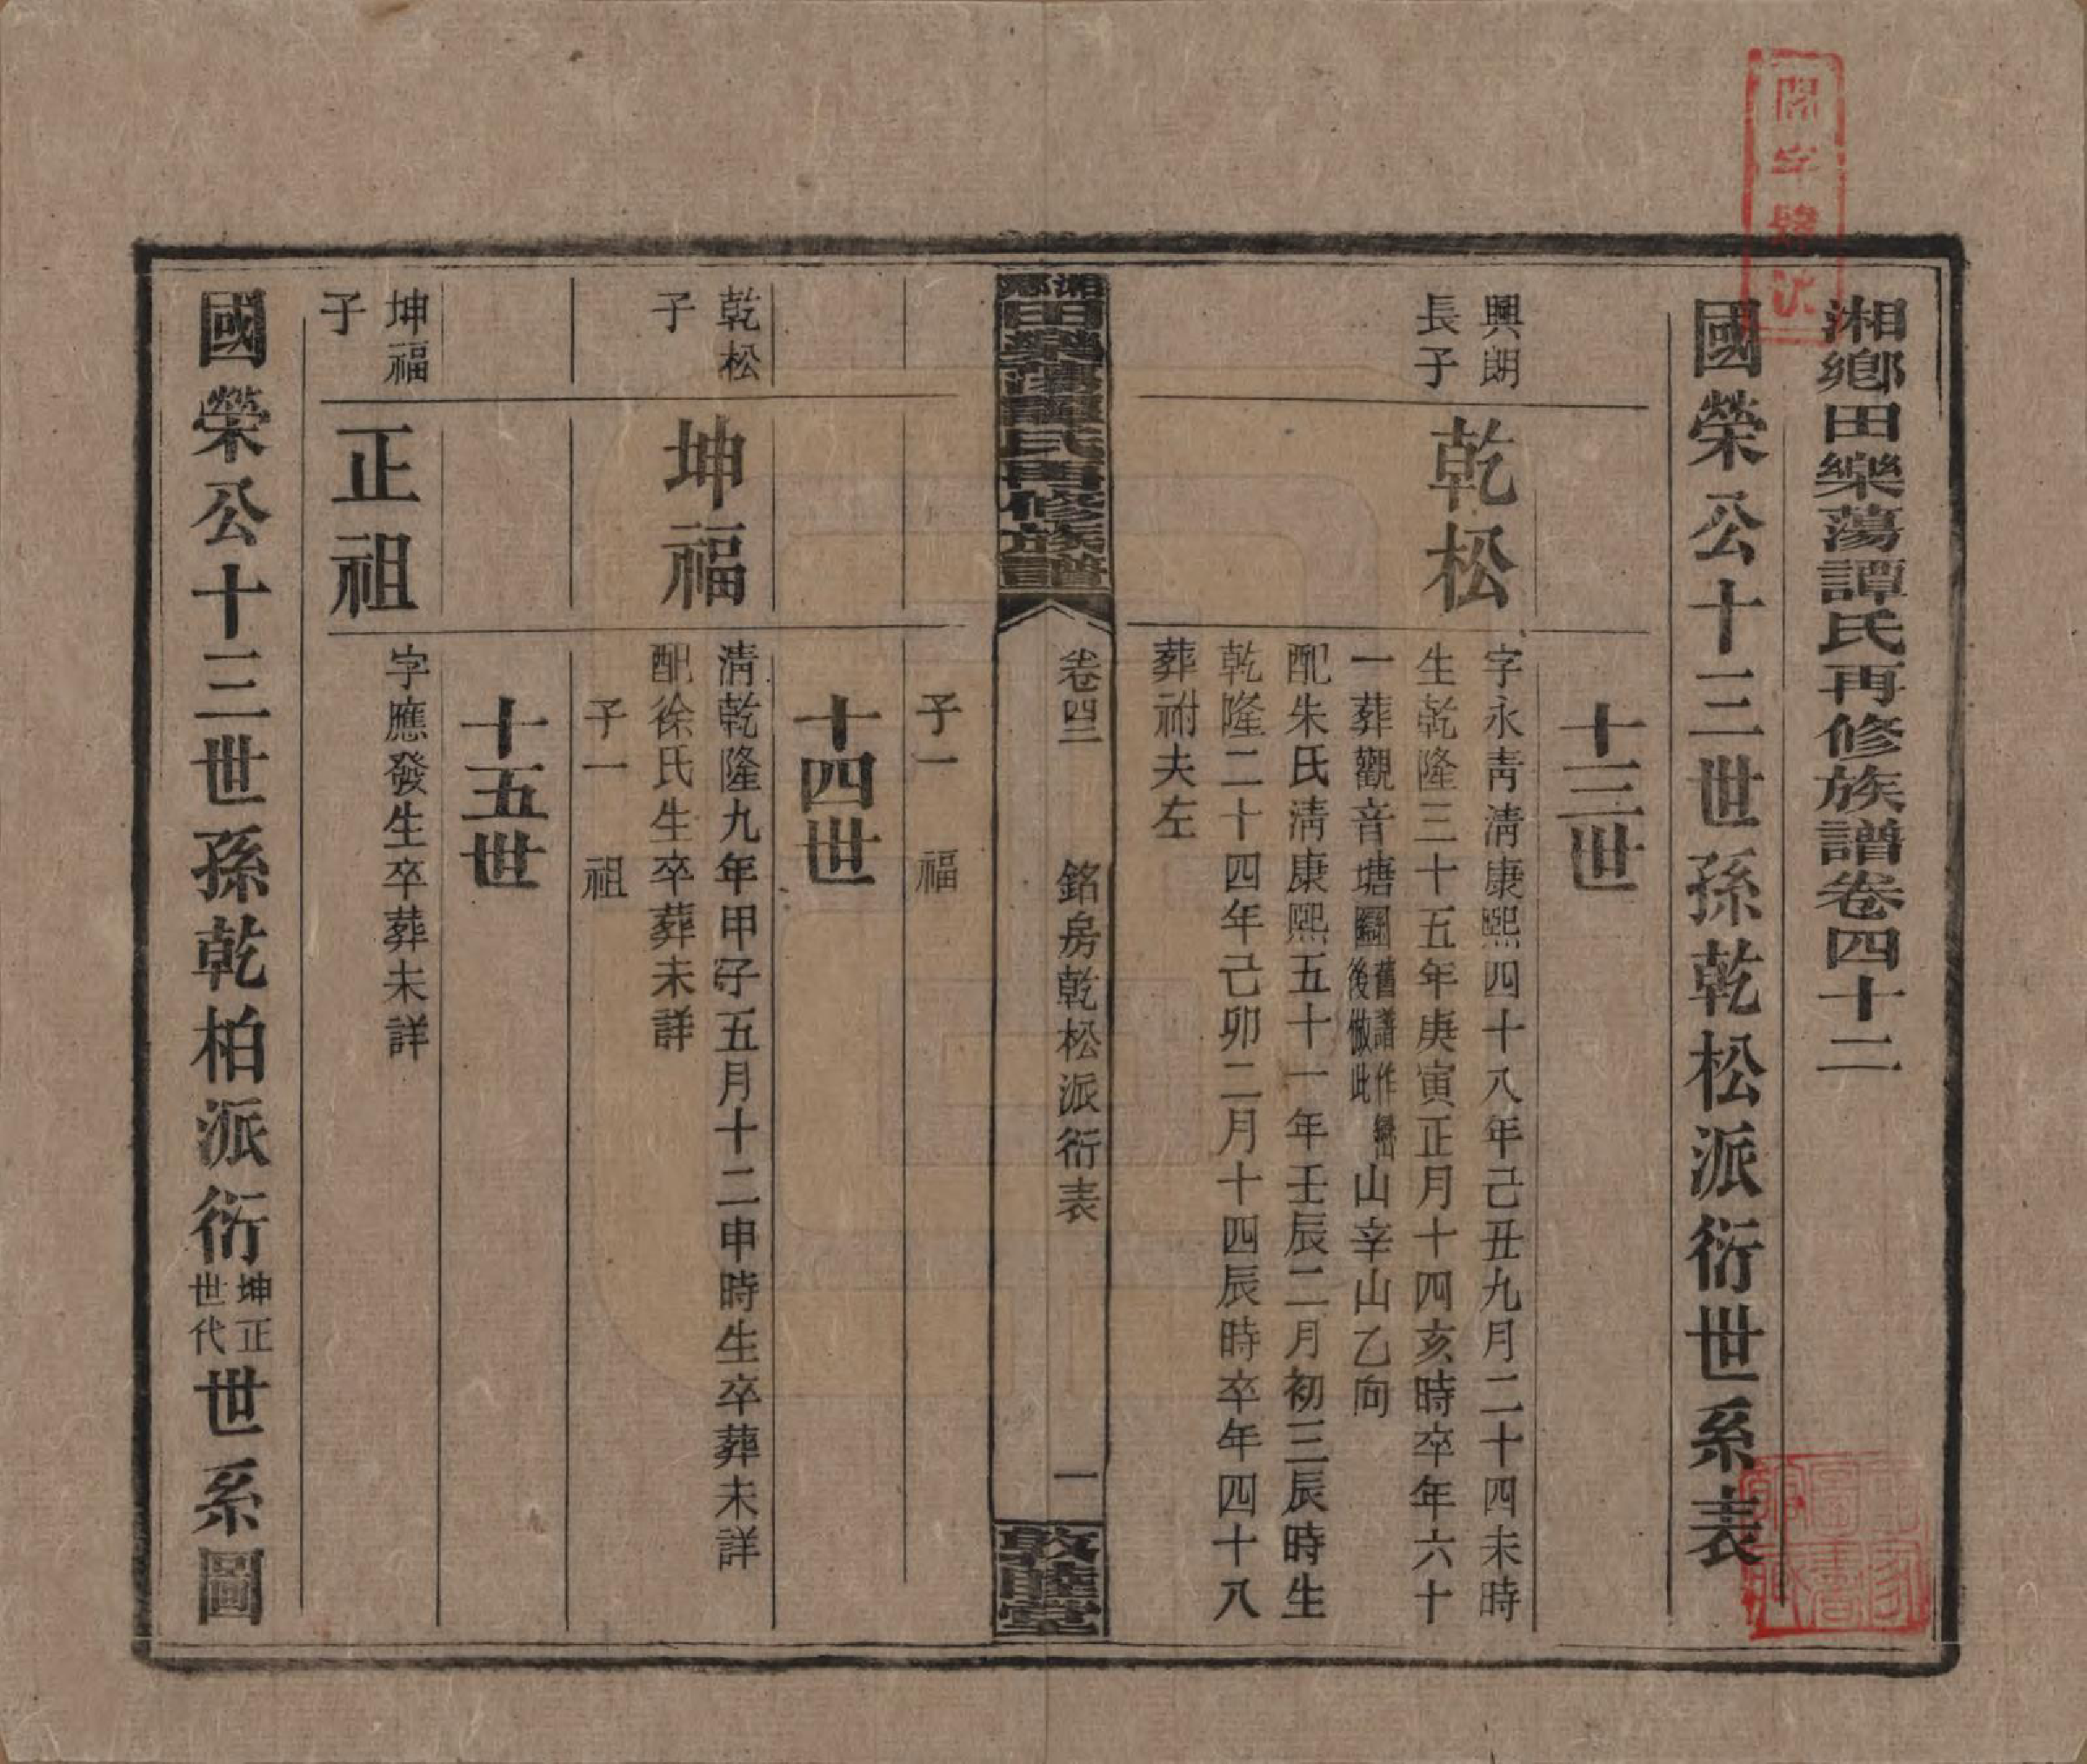 湘鄕田樂蕩譚氏再修族譜卷四十二
國榮公十三世孫乾松派衍世系表
十三世
興朗
長子
乾松
字永靑淸康熙四十八年己丑九月二十四未時
生乾隆三十五年庚寅正月十四亥時卒年六十
一葬觀音塘
舊譜作
後倣此
山辛山乙向
配朱氏淸康熙五十一年壬辰二月初三辰時生
乾隆二十四年己卯二月十四辰時卒年四十八
葬祔夫左
湘鄕田樂蕩譚氏再修族譜
卷四二 銘房乾松派衍表 一
敦睦堂
子一 福
十四世
乾松
子
坤福
淸乾隆九年甲子五月十二申時生卒葬未詳
配徐氏生卒葬未詳
子一 祖
十五世
坤福
子
正祖
字應發生卒葬未詳
國榮公十三世孫乾柏派衍坤正世代世系圖